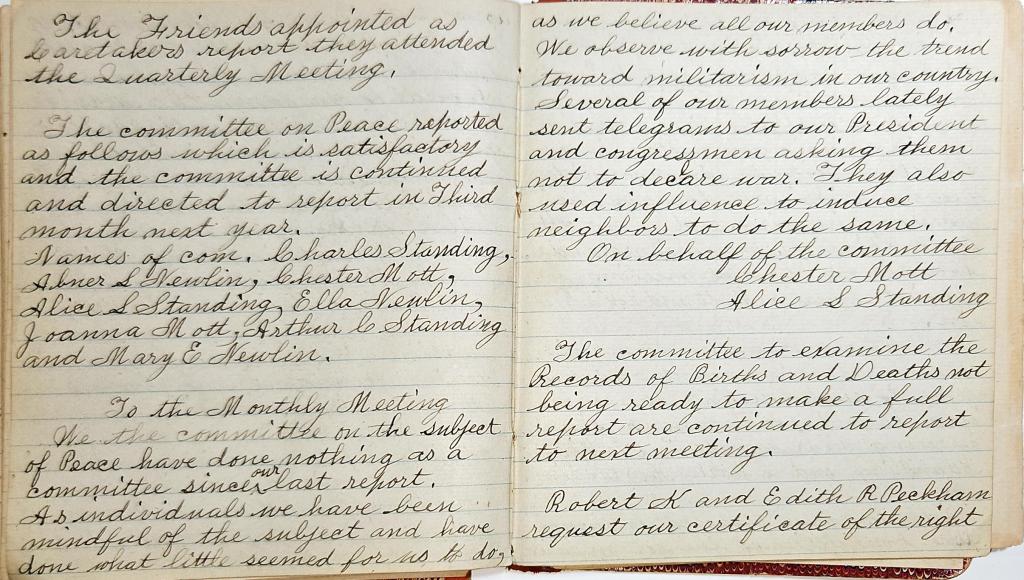 The Friends appointed as
Caretakers report they attended
the Quarterly Meeting.
The committee on Peace reported
as follows which is satisfactory
and the committee is continued
and directed to report in Third
month next year.
Names of com. Charles Standing,
Abner L Newlin, Chester Mott,
Alice L Standing, Ella Newlin,
Joanna Mott, Arthur C Standing
and Mary E Newlin.
To the Monthly Meeting
We the committee on the subject
of Peace have done nothing as a
committee since our last report.
As individuals we have been
mindful of the subject and have
done what little seemed for us to do,
as we believe all our members do.
We observe with sorrow the trend
toward militarism in our country.
Several of our members lately
sent telegrams to our President
and congressmen asking them
not to declare war. They also
used influence to induce
neighbors to do the same.
On behalf of the committee
Chester Mott
Alice L Standing
The committee to examine the
Records of Births and Deaths not
being ready to make a full
report are continued to report
to next meeting.
Robert K and Edith R Peckham
request our certificate of the right